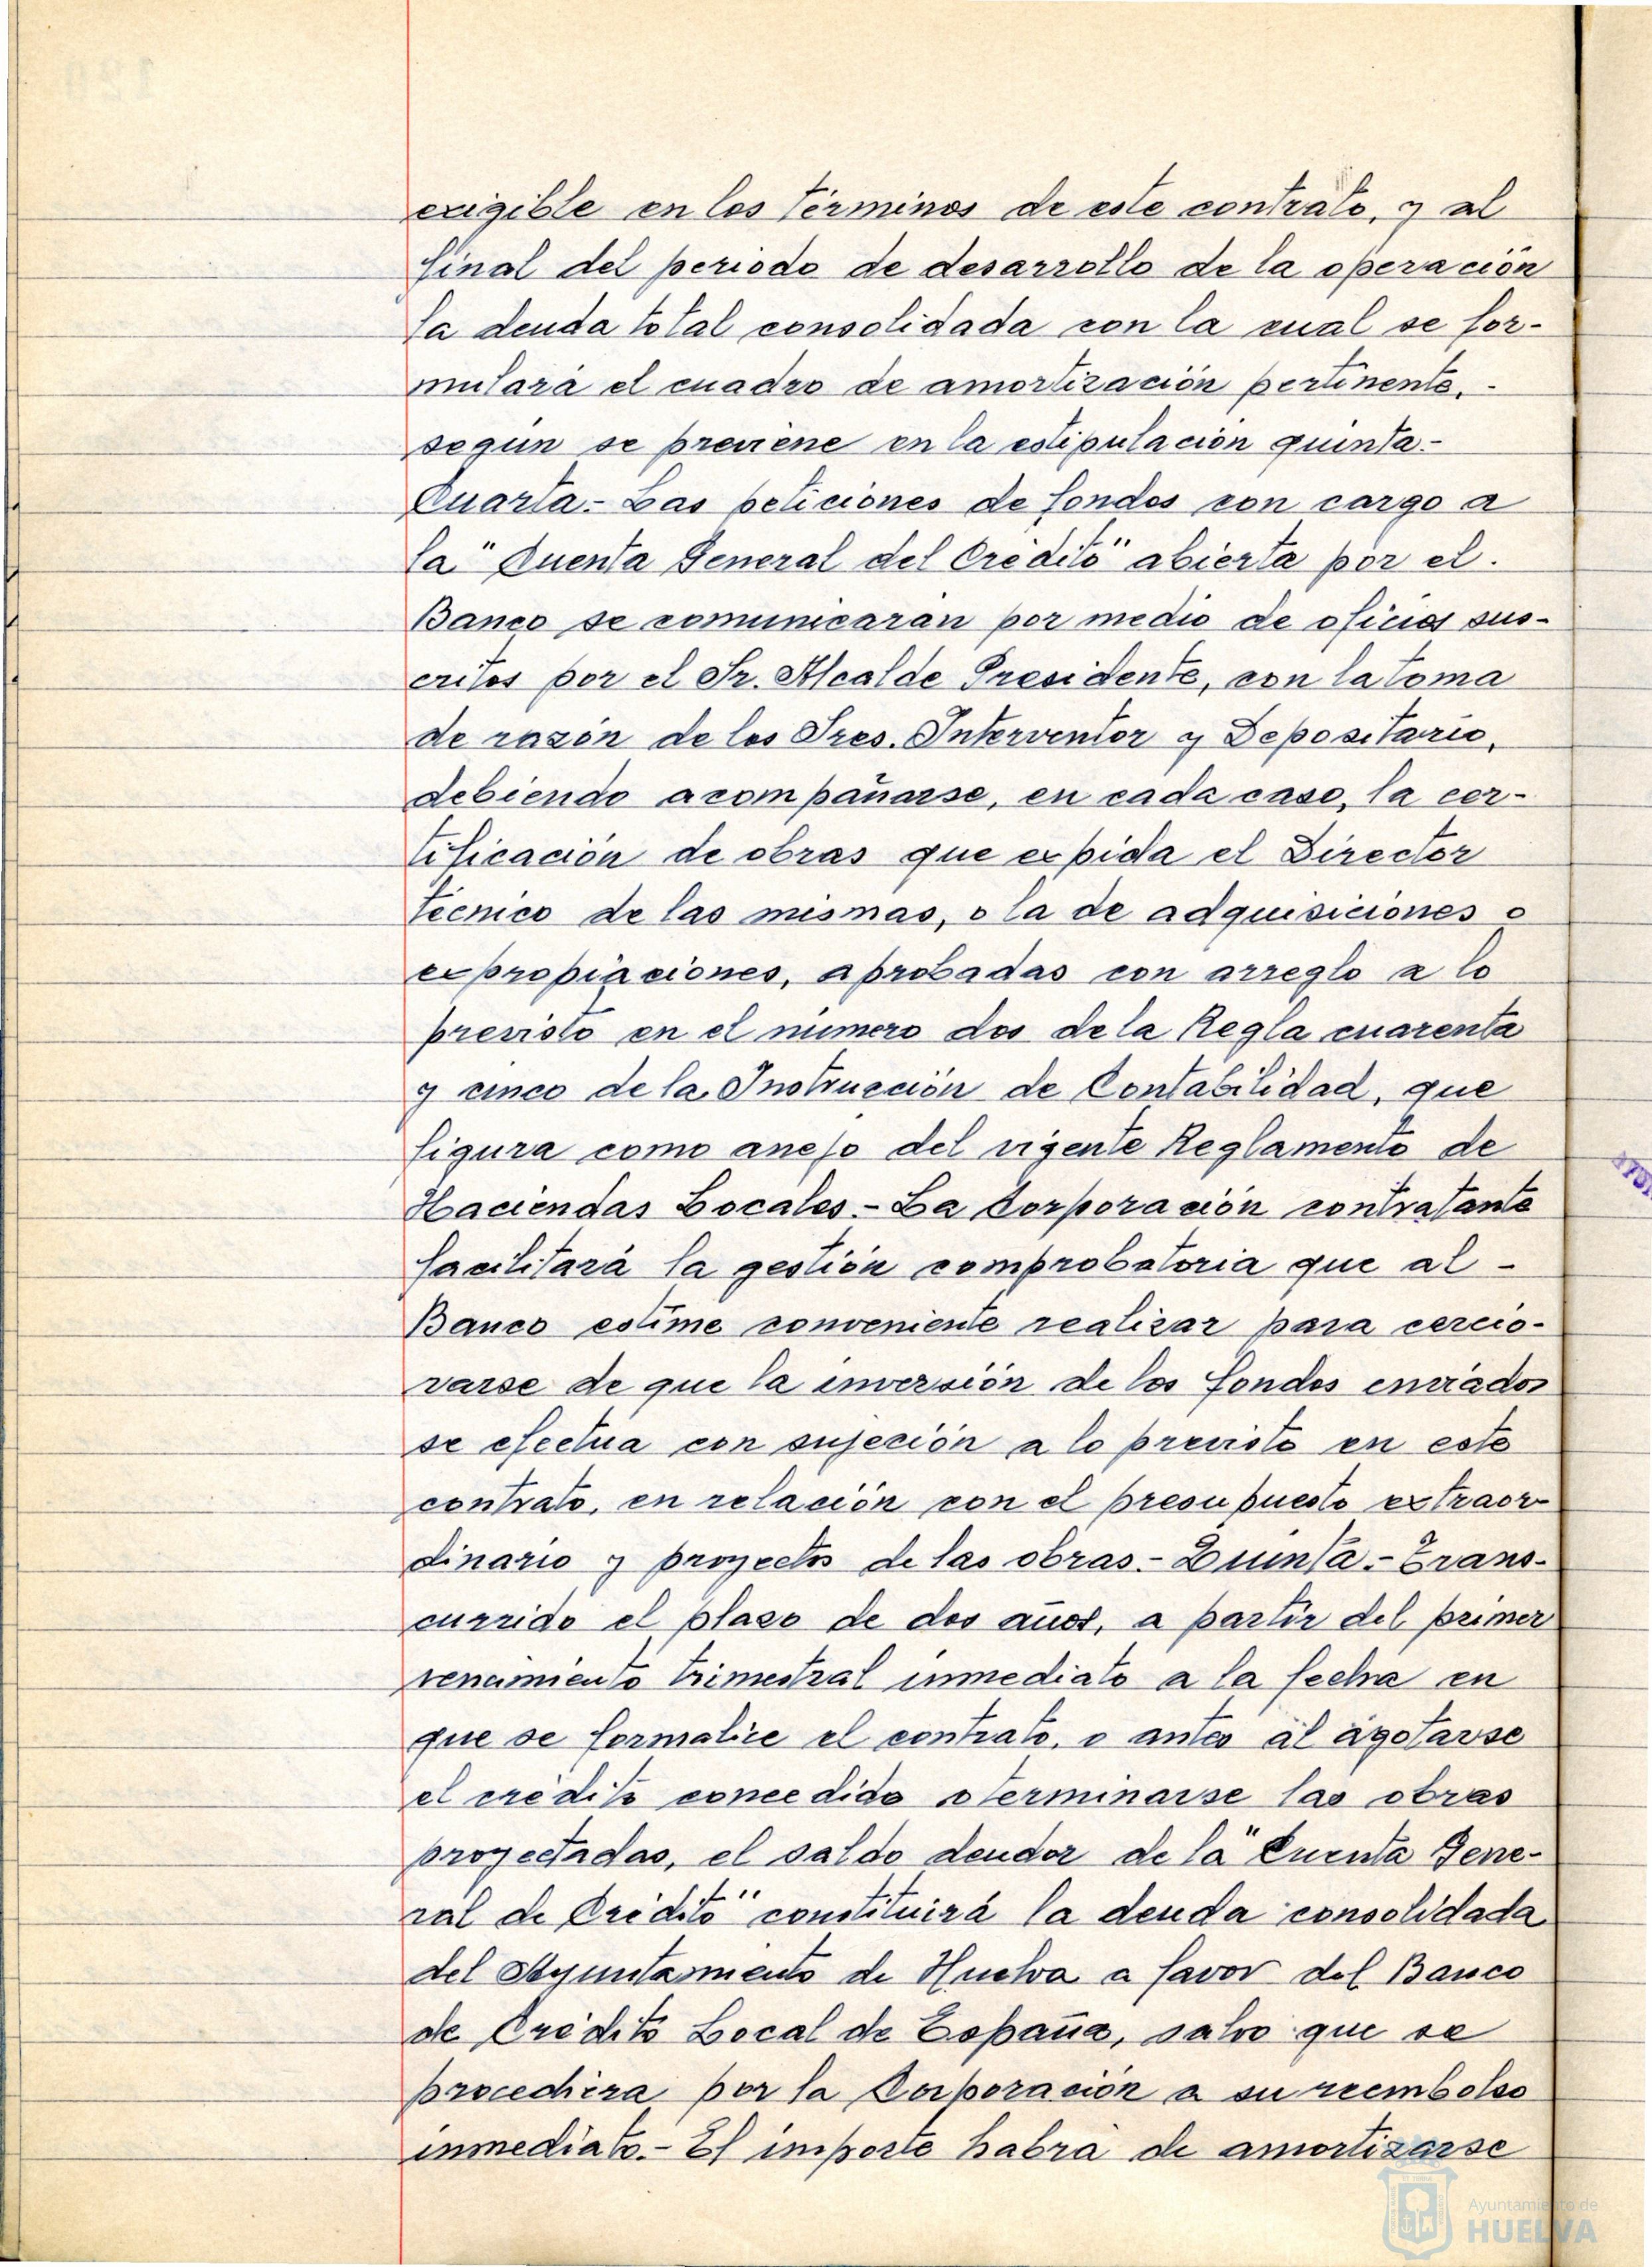 exigible en los términos de este contrato, y al
final del periodo de desarrollo de la operación
la deuda total consolidada con la cual se for-
mulará el cuadro de amortización pertinente, -
según se previene en la estipulación quinta.-
Cuarta.- Las peticiones de fondos con cargo a
la "Cuenta General del Crédito" abierta por el.
Banco se comunicarán por medio de oficios sus-
critos por el Sr. Alcalde Presidente, con la toma
de razón de los Sres. Interventor y Depositario,
debiendo acompañarse, en cada caso, la cer-
tificación de obras que expida el Director
Técnico de las mismas, o la de adquisiciones o
expropiaciones, aprobadas con arreglo a lo
previsto en el número dos de la Regla cuarenta
y cinco de la Instrucción de Contabilidad, que
figura como anejo del vigente Reglamento de
Haciendas Locales.- La Corporación contratante
facilitará la gestión comprobatoria que al -
Banco estime conveniente realizar para cercio-
rarse de que la inversión de los fondos enviados
se efectúa con sujeción a lo previsto en este
contrato, en relación con el presupuesto extraor-
dinario y proyectos de las obras.- Quinta.- Trans-
currido el plazo de dos años, a partir del primer
vencimiento trimestral inmediato a la fecha en
que se formalice el contrato, o antes al agotarse
el crédito concedido o terminarse las obras
proyectadas, el saldo deudor de la "Cuenta Gene-
ral de Crédito" constituirá la deuda consolidada
del Ayuntamiento de Huelva a favor del Banco
de Crédito Local de España, salvo que se
procediera por la Corporación a su reembolso
inmediato.- El importe habrá de amortizarse
Ayuntamiento de
HUELVA